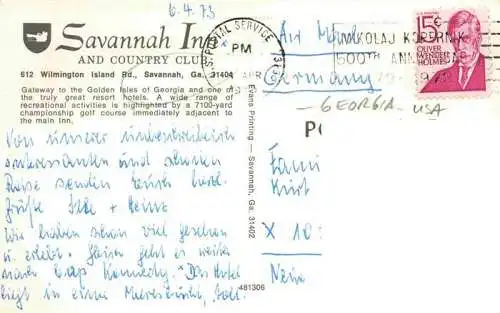 6.4.73
Savannah Inn
AND COUNTRY CLUB
612 Wilmington Island Rd., Savannah, Ga. 31404
Gateway to the Golden Isles of Georgia and one of
the truly great resort hotels. A wide range of
recreational activities is highlighted by a 7100-yard
championship golf course immediately adjacent to
the main Inn.
Von unserer unbeschreiblich
interessanten und schönen
Reise senden Euch herzl.
Grüße +
Wir haben schon viel gesehen
u. erlebt. geht es weiter
nach Cap Kennedy. Das Hotel
liegt in einer Meeresbucht,
Evans Printing — Savannah, Ga. 31402
481306
POSTAL SERVICE
PM
APR
Air Mail
Germany
MIKOLAJ KOPERNIK
500TH
15¢
OLIVER
WENDELL
HOLMES
- GEORGIA - USA
Fami
Kurt
X 10